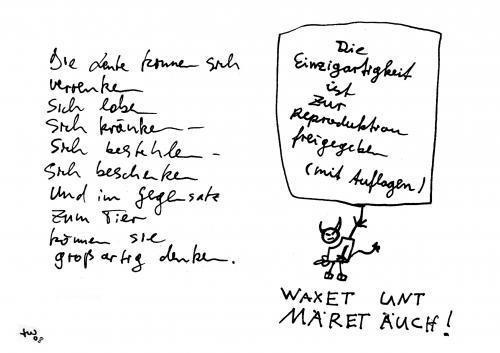 Die Leute können sich
verrenken
Sich loben
Sich kränken –
Sich bestehlen –
Sich beschenken
Und im Gegensatz
Zum Tier
können sie
großartig denken.
Die
Einzigartigkeit
ist
Zur
Reproduktion
freigegeben
(mit Auflagen)
WAXET UNT
MÄRET ÄUCH!